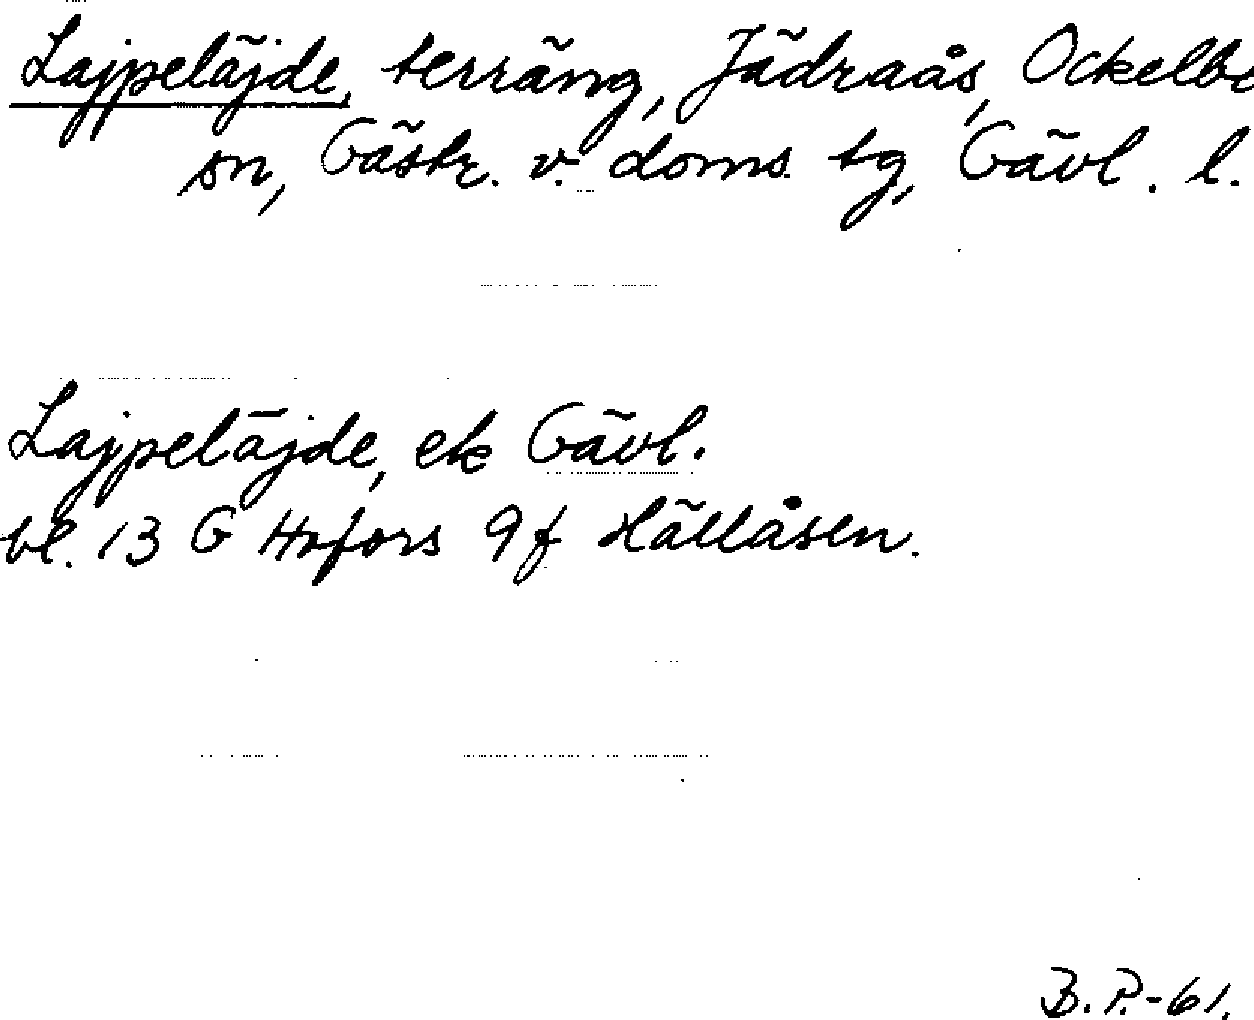 Lajpeläjde, terräng, Jädraås, Ockelbo
sn, Gästr. v. doms. tg, Gävl. l.
Lajpeläjde, ek Gävl.
bl. 13 G Hofors 9f Hällåsen.
B. P.-61.